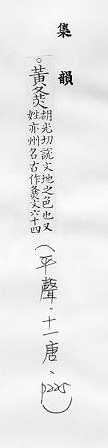 集韻
○黃炗
胡光切說文地之色也又
姓亦州名古作文六十四
(平聲.十一唐、p225)